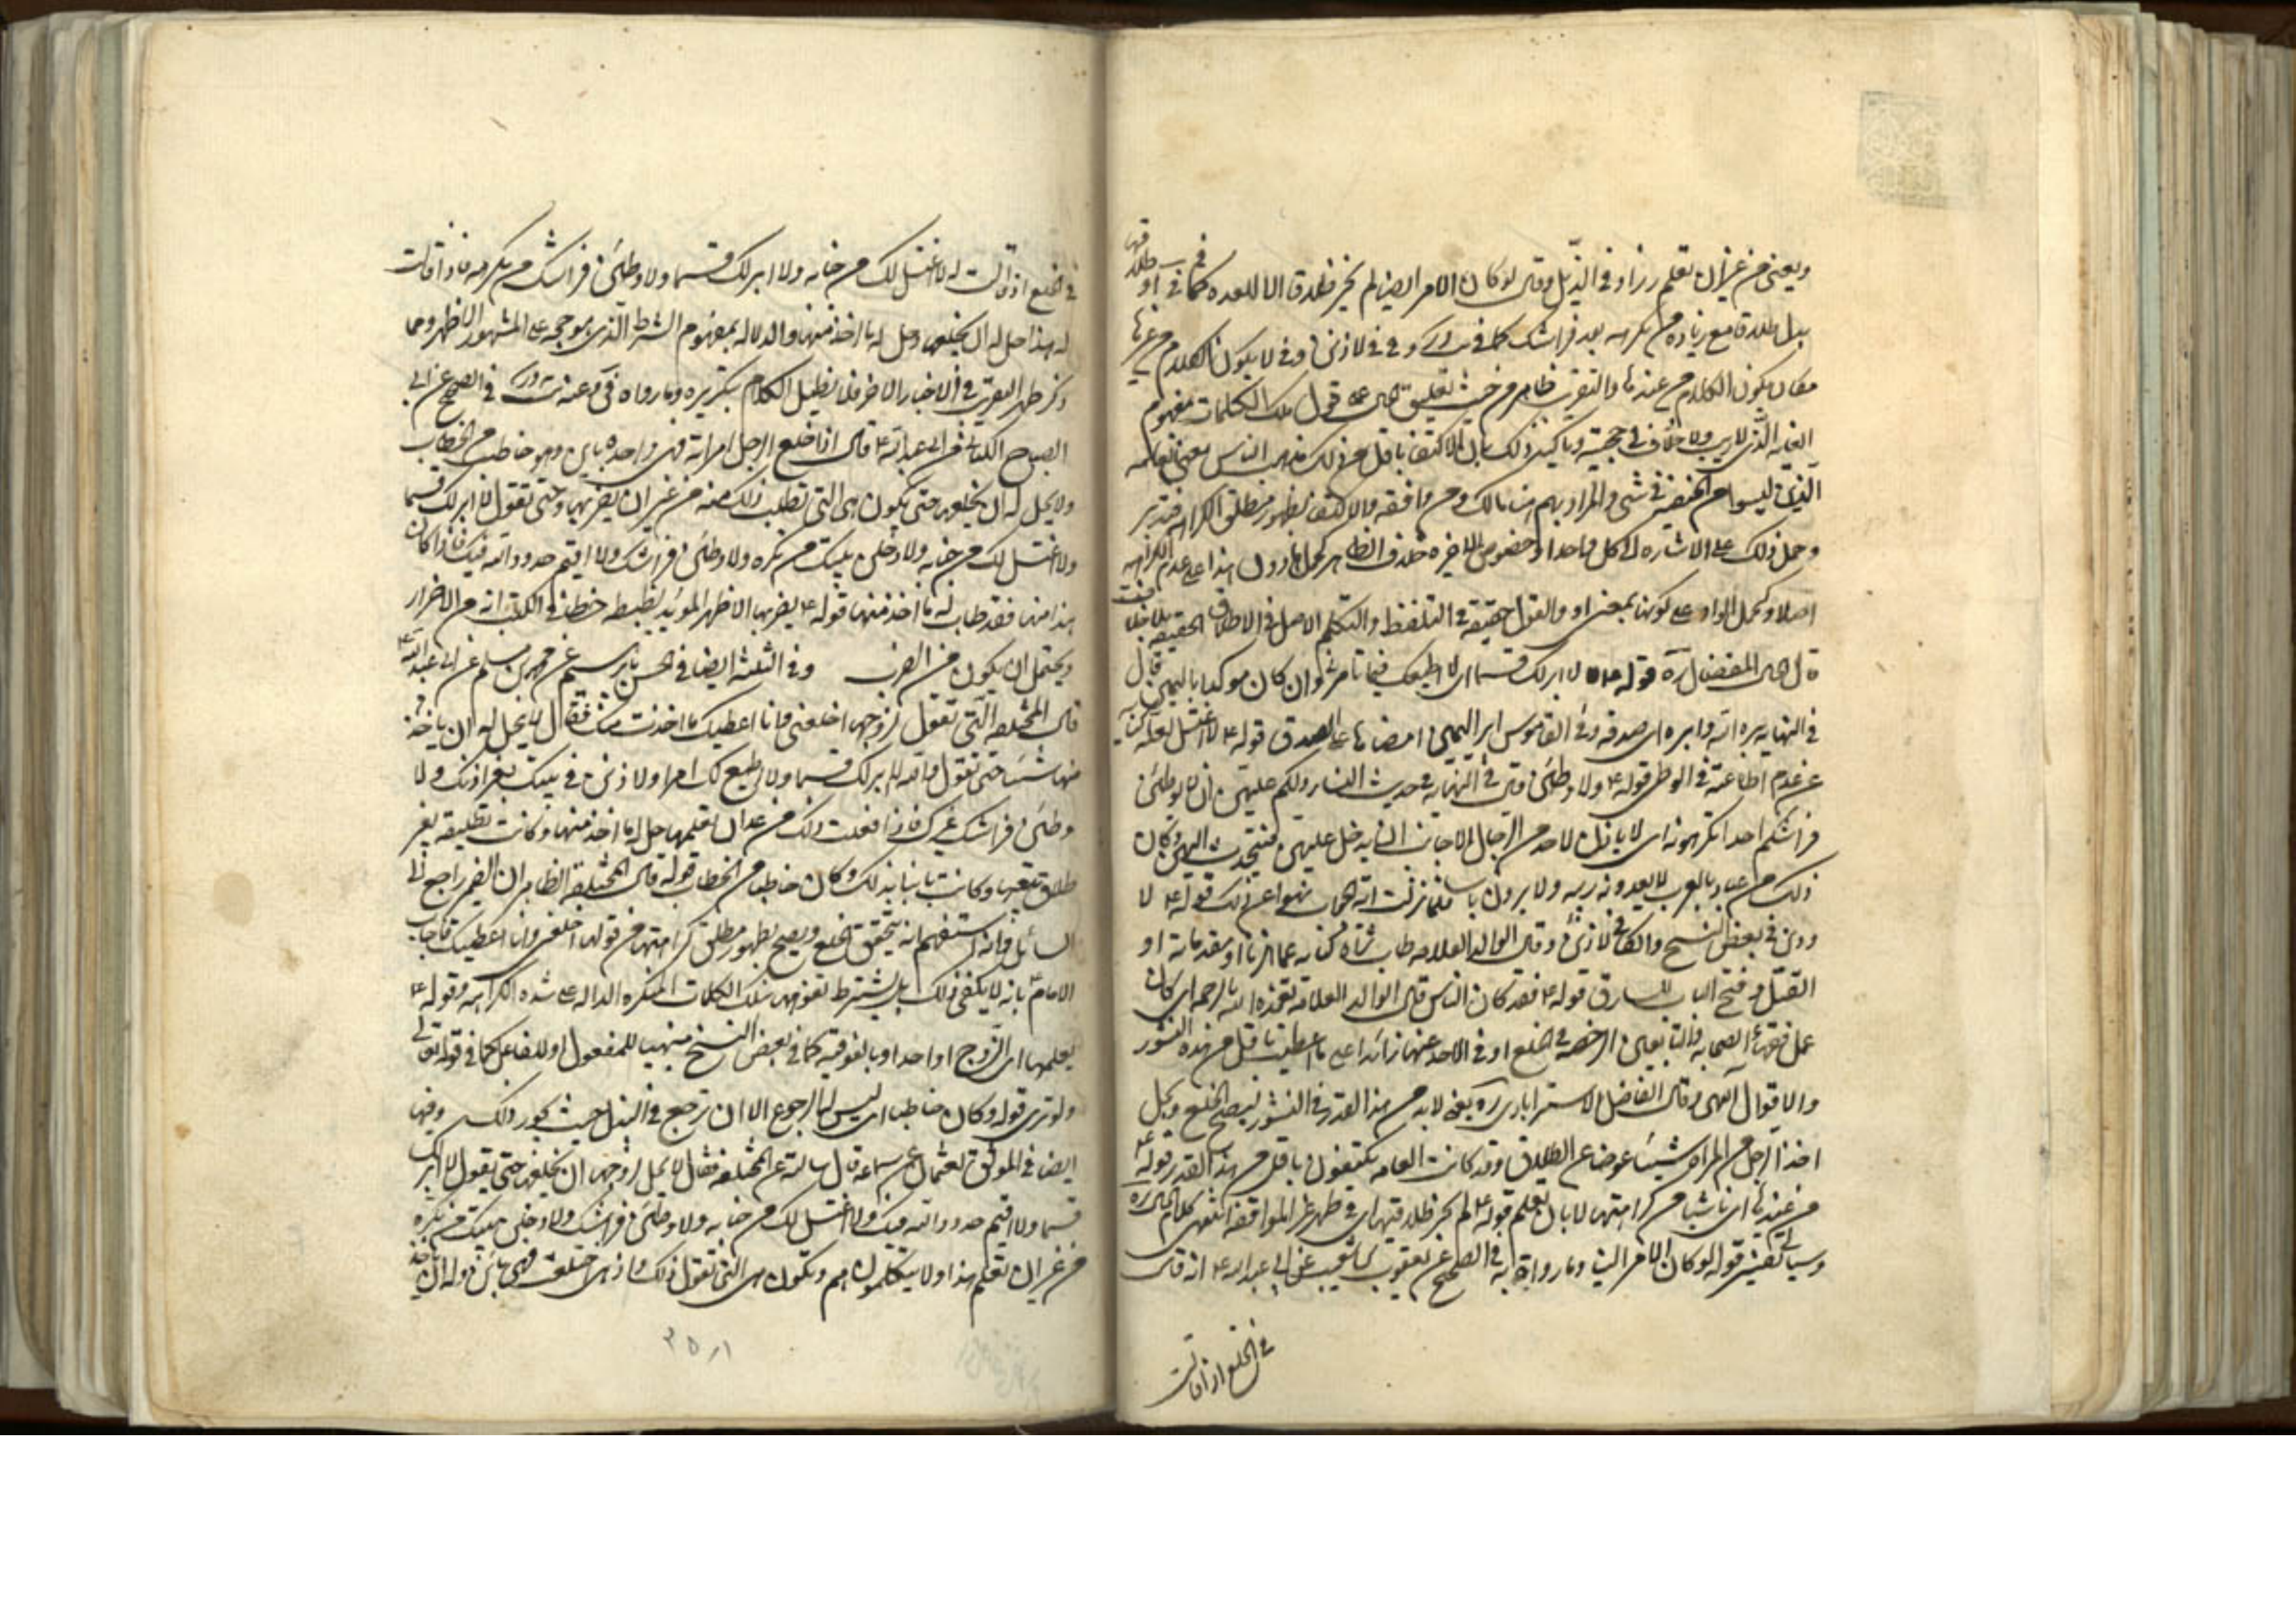 ويعنى من غير ان تعلم وزاد فى الذيل وقال لو كان الامر الينا لم يجز طلاق الا للعدة كما فى
بدل طلاقا مع زيادة من تكرهه بعد فراشك كما فى
مقال يكون الكلام من عندها والتقريب ظاهر من حيث تعليق الحل على قول تلك الكلمات بمفهوم
الغاية الذى لا ريب ولا خلاف فى حجيته وتاكيد ذلك بان الاكتفاء باقل من ذلك مذهب الناس يعنى العامة
الذين ليسوا من الحنيفية فى شىء والمراد بهم هنا مالك ومن وافقه والاكتفاء بظهور مطلق الكراهة فتدبر
وحمل ذلك على الاشارة الى كل واحد او خصوص الاخيرة خلاف الظاهر كحمل هذا على عدم الكراهة
اصلا وكحمل الواو على كونها بمعنى او والقول حقيقة فى التلفظ والتكلم الاصل فى الاطلاق الحقيقة
قال المفضال ره قوله لا ابر لك قسما اى لا اطيعك فيما تامر وان كان موكدا باليمين قال
فى النهاية بره الله وابره اى صدقه وفى القاموس ابر اليمين امضاها على الصدق قوله ع لا اغتسل لعله كناية
عن عدم اطاعته فى الوطى قوله ع ولاوطئن قال فى النهاية فى حديث النساء ولكم عليهن ان لا يوطئن
فراشكم احدا تكرهونه اى لا ياذن لاحد من الرجال الاجانب ان يدخل عليهن فيتحدث اليهن وكان
ذلك من عادة العرب لا يعدونه ريبة ولا يرون به باسا فلما نزلت اية الحجاب نهوا عن ذلك قوله ع لا
وذن فى بعض النسخ والكافى لاذنن وقال الوالد العلامة طاب ثراه كناية عما الزنا او مقدماته او
القتل وفتح الباب للسارق قوله ع فقد كان الناس قال الوالد العلامة تغمده الله بالرحمة اى كان
عمل فقهاء الصحابة والتابعين الرخصة فى الخلع او فى الاخذ منها زائدا على ما اعطيت باقل من هذه النشوز
والاقوال انتهى وقال الفاضل الاستر ابادى ره يعنى لابد من هذا القدر فى النشوز ليصح الخلع ويحل
اخذ الرجل من المراة شيئا عوضا عن الطلاق وقد كانت العامة يكتفون باقل من هذا القدر قوله ع
من عندها اى ناشيا من كراهتها لا بان تعلم قوله ع لم يجز طلاقها اى فى طهر غير المواقعة انتهى كلام
وسياتى تفسير قوله لو كان الامر الينا وما رواه به فى الصحيح عن يعقوب بن شعيب عن ابى عبد الله ع انه قال
فى الخلع اذا قالت
فى الخلع اذا قالت له لا اغتسل لك من جنابة ولا ابر لك قسما ولاوطئن فراشك من تكرهه فاذا قالت
له هذا حل له ان يخلعها وحل له ما اخذ منها والدلالة بمفهوم الشرط الذى هو حجة على المشهور الاظهر ومما
ذكر ظهر التقريب فى الاخبار الاخر فلا نطيل الكلام بتكريره وما رواه فى الصحيح عن ابى
الصباح الكنانى عن ابى عبد الله ع قال اذا خلع الرجل امراته فهى واحدة باين وهو خاطب من الخطاب
ولا يحل له ان يخلعها حتى تكون هى التى تطلب ذلك منه من غير ان يضر بها وحتى تقول لا ابر لك قسما
ولا اغتسل لك من جنابة ولادخلن بيتك من تكره ولاوطئن فراشك ولا اقيم حدود الله فيك فاذا كان
هذا منها فقد طاب له ما اخذ منها قوله ع يضر بها الاظهر المؤيد بضبطه انه من الاضرار
ويحتمل ان يكون من الضرب وفى الثلثة ايضا فى الحسن بابراهيم عن محمد بن مسلم عن ابى عبد الله ع
قال المختلعة التى تقول لزوجها اخلعنى وانا اعطيك ما اخذت منك فقال لا يحل له ان ياخذ
منها شيئا حتى تقول والله لا ابر لك قسما ولا اطيع لك امرا ولاذنن فى بيتك بغير اذنك ولا
وطئن فراشك غيرك فاذا فعلت ذلك من غير ان يعلمها حل له ما اخذ منها وكانت تطليقة بغير
طلاق يتبعها وكانت باينا بذلك وكان خاطبا من الخطاب قوله قال المختلعة الظاهر ان الضمير راجع الى
السائل وانه استفهم انه يتحقق الخلع ويصح بظهور مطلق كراهتها من قولها اخلعنى وانا اعطيك فاجاب
الامام ع بانه لا يكفى ذلك بل يشترط تفوهها بتلك الكلمات المنكرة الدالة على شدة الكراهة وقوله ع
يعلمها اى الزوج او احد او بالفوقية كما فى بعض النسخ مبنيا للمفعول او للفاعل كما فى قوله تعالى
ولو ترى قوله وكان خاطبا اى ليس لها الرجوع الا ان ترجع فى البذل حيث يجوز ذلك وفيها
ايضا فى الموثق لعثمان عن سماعة قال سالته عن المختلعة فقال لا يحل لزوجها ان يخلعها حتى تقول لا ابر لك
قسما ولا اقيم حدود الله فيك ولا اغتسل لك من جنابة ولاوطئن فراشك ولادخلن بيتك من تكره
من غير ان تعلم هذا ولا يتكلمونهم وتكون هى التى تقول ذلك فاذا هى اختلعت فهى باين وله ان ياخذ